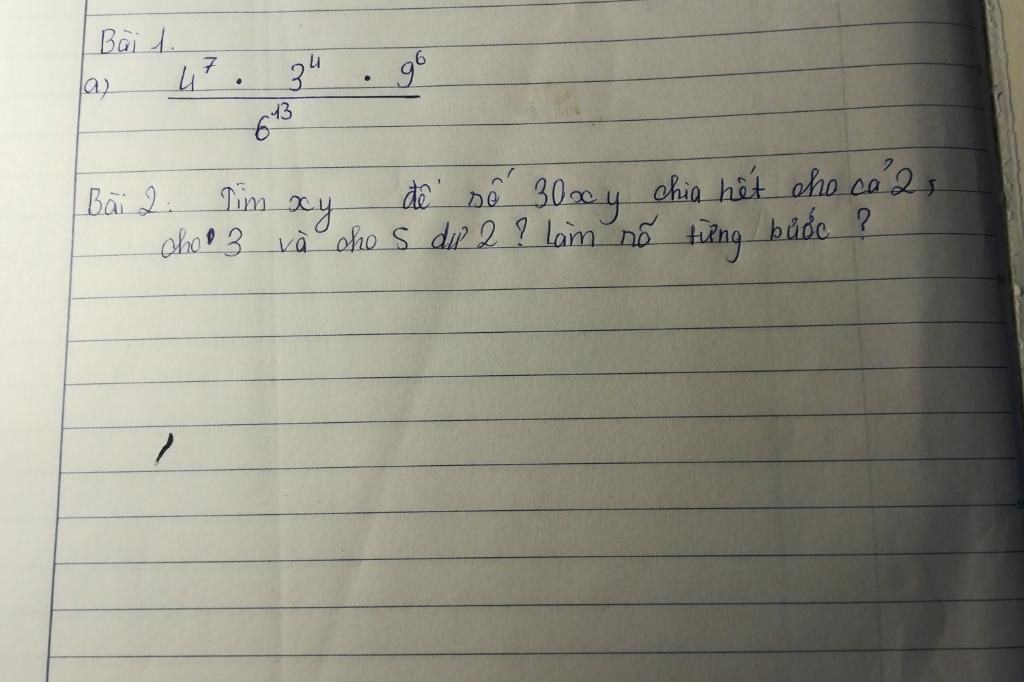 Bài 1.
a) 4^7 . 3^4 . 9^6
6^13
Bài 2: Tìm xy để số 30xy chia hết cho cả 2,
cho 3 và cho 5 dư 2? làm rõ từng bước?